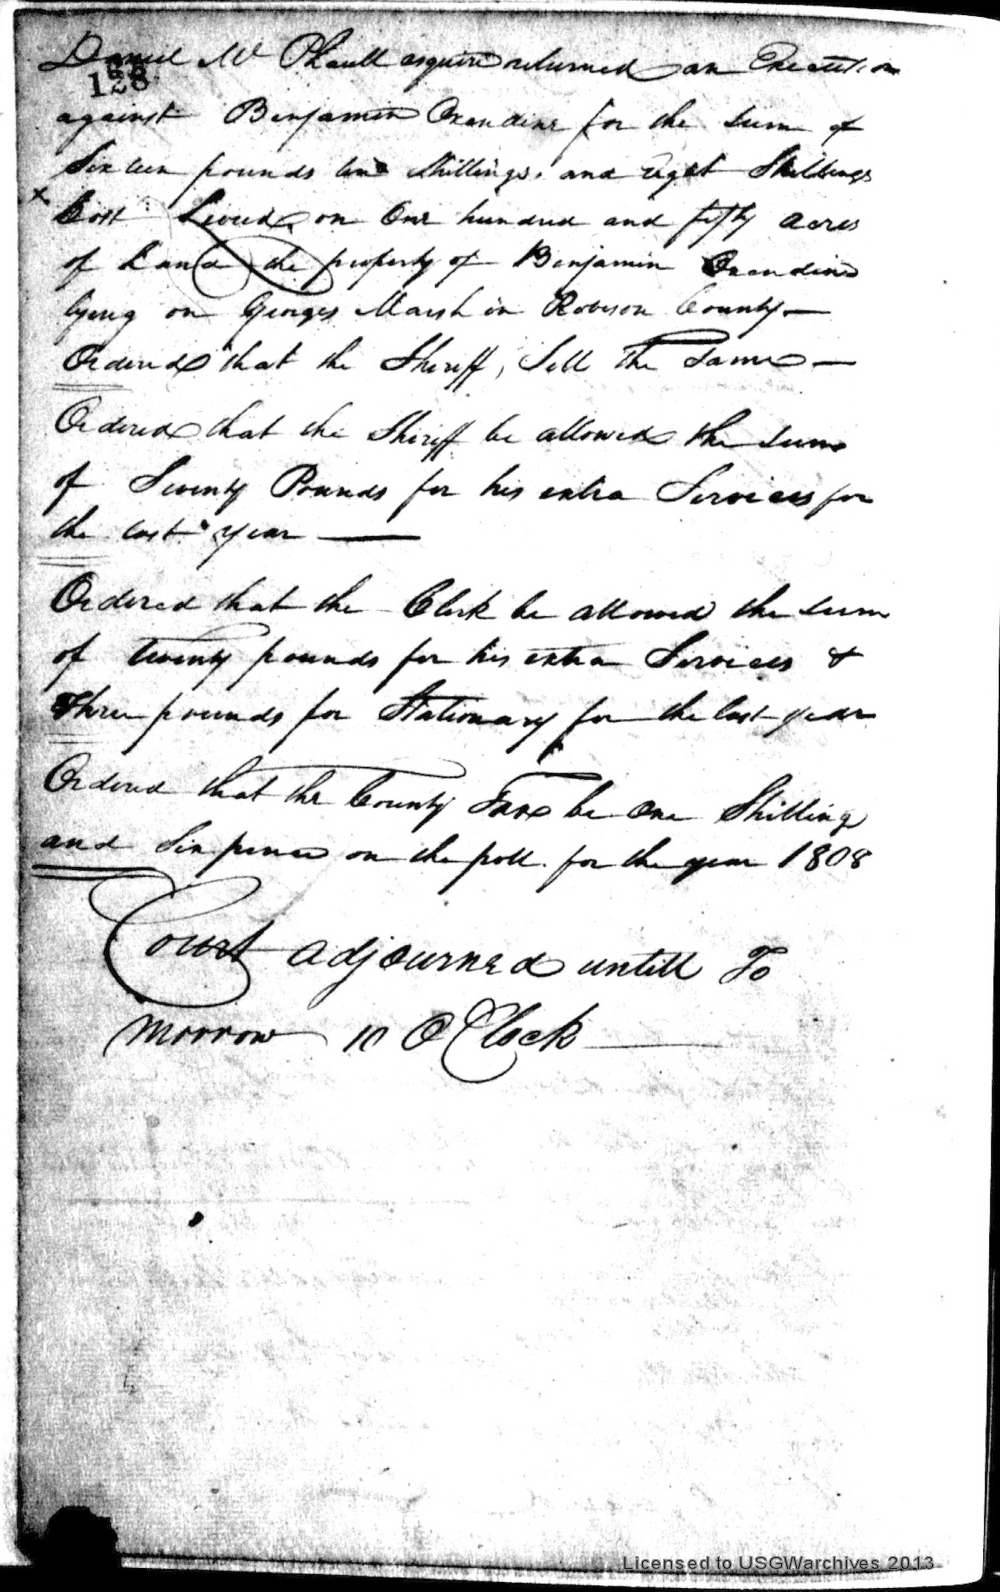 Daniel Mc Phaull esquire returned an Execution
128
against Benjamin Oxendine for the sum of
Sixteen pounds ten shillings and eight Shillings
x Cost Levied on One hundred and fifty acres
of Land the property of Benjamin Oxendine
lying on Georges Marsh in Robeson County —
Ordered that the Sheriff, Sell the Same —
Ordered that the Sheriff be allowed the sum
of Seventy Pounds for his extra Services for
the last year —
Ordered that the Clerk be allowed the sum
of twenty pounds for his extra Services &
Three pounds for Stationary for the last year
Ordered that the County Tax be One Shilling
and Six pence on the poll for the year 1808
Court adjourned untill To
morrow 10 O Clock —
Licensed to USGWarchives 2013